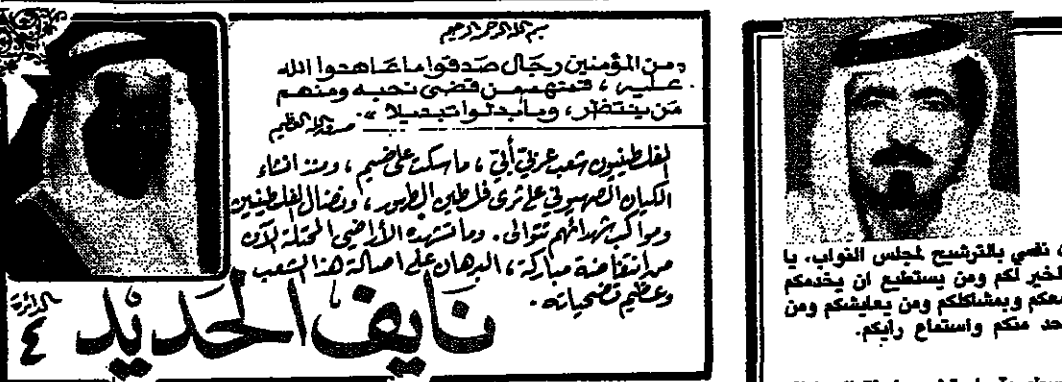 بسم الله الرحمن الرحيم
«من المؤمنين رجال صدقوا ما عاهدوا الله
عليه ، فمنهم من قضى نحبه ومنهم
من ينتظر ، وما بدلوا تبديلا» .
صدق الله العظيم
الفلسطينيون شعب عربي أبي ، ما سكت على ضيم ، ومنذ انشاء
الكيان الصهيوني على ثرى فلسطين الطهور ، ونضال الفلسطينيين
ومواكب شهدائهم تتوالى . وما تشهده الأراضي المحتلة الآن
من انتفاضة مباركة ، البرهان على اصالة هذا الشعب
وعظيم تضحياته .
نايف الحديد
الدائرة
٤
نفسي بالترشيح لمجلس النواب، يا
الخير لكم ومن يستطيع ان يخدمكم
معكم وبمشاكلكم ومن يعايشكم ومن
حد منكم واستماع رايكم.